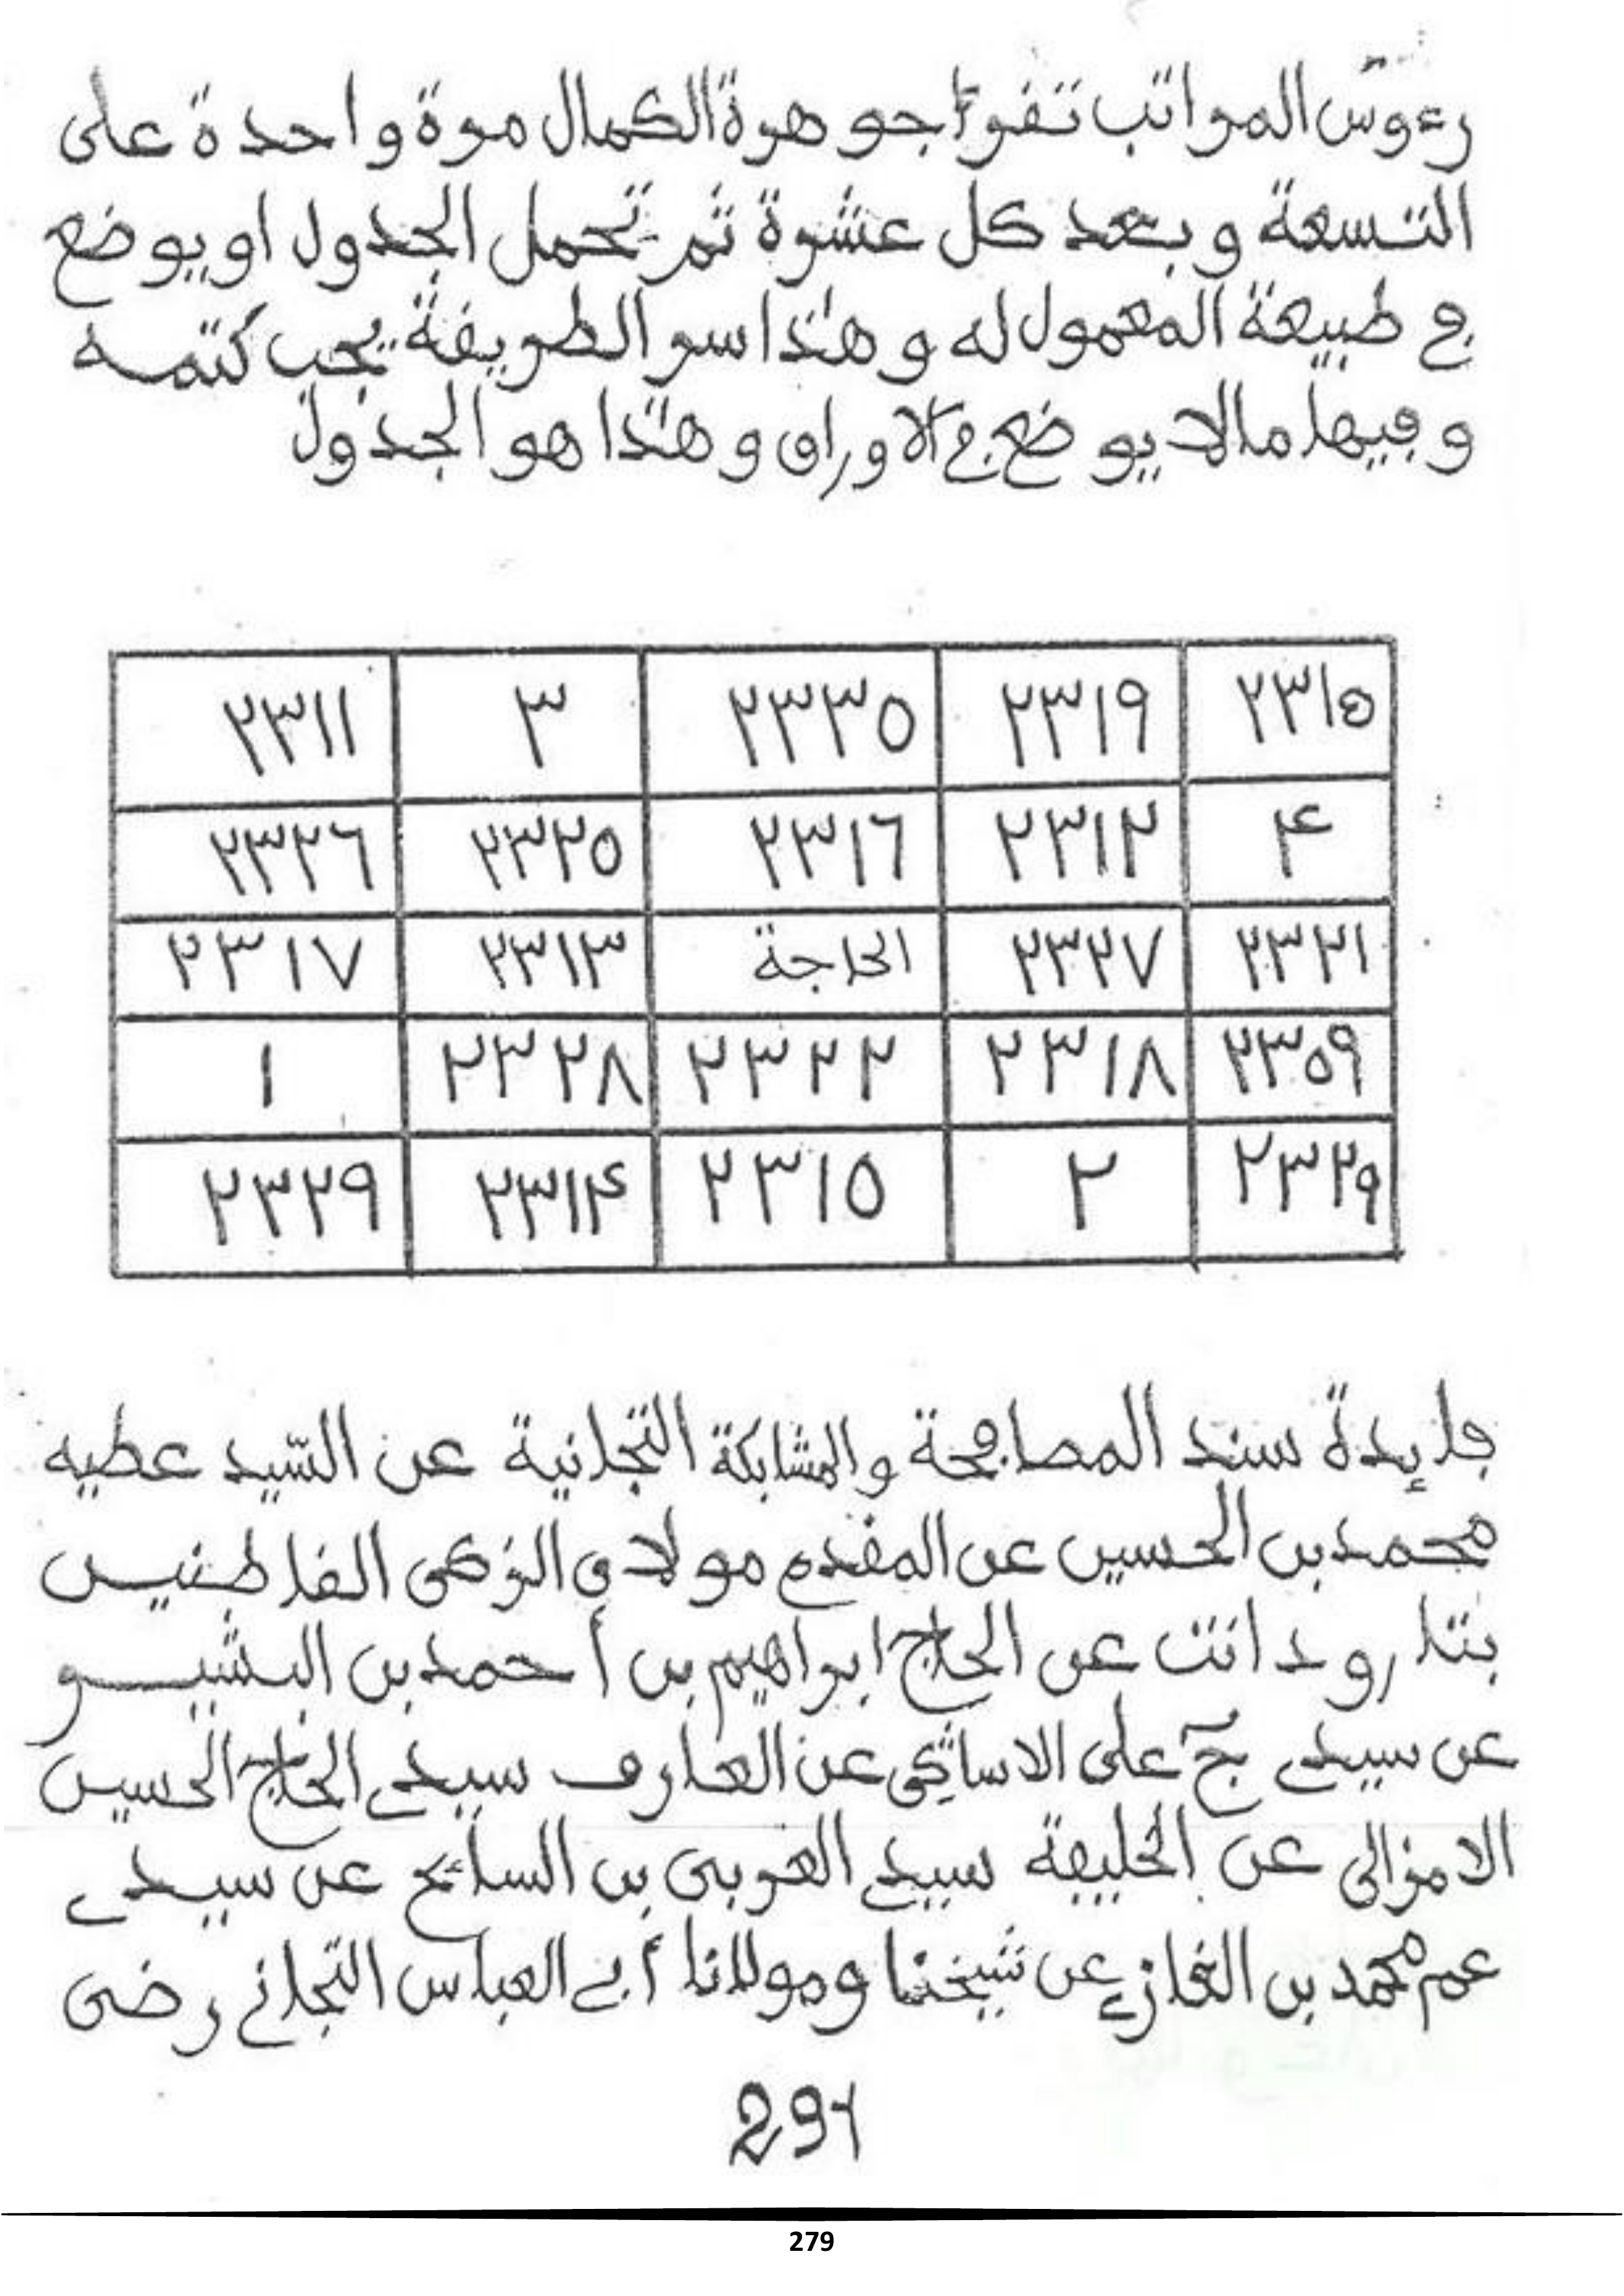 رءوس المراتب تقرأ جوهرة الكمال مرة واحدة على
التسعة وبعد كل عشرة ثم تحمل الجدول او يوضع
في طبيعة المعمول له وهذا سر الطريقة يجب كتمه
وفيها مالا يوضع في الاوراق وهذا هو الجدول
٢٣١٥ ٢٣١٩ ٢٣٣٥ ٣ ٢٣١١
۴ ٢٣١٢ ٢٣١٦ ٢٣٢٥ ٢٣٢٦
٢٣٢١ ٢٣٢٧ الحاجة ٢٣١٣ ٢٣١٧
٢٣٥٩ ٢٣١٨ ٢٣٢٢ ٢٣٢٨ ١
٢٣٢٩ ٢ ٢٣١٥ ٢٣١۴ ٢٣٢٩
فايدة سند المصافحة والمشابكة التجانية عن السيد عطيه
محمد بن الحسين عن المقدم مولاي الزكي القاطنيين
بتارودانت عن الحاج ابراهيم بن أحمد بن البشير
عن سيدي ج علي الاساكي عن العارف سيدي الحاج الحسين
الامزالي عن الخليفة سيدي العربي بن السائح عن سيدي
عم محمد بن الغازي عن شيخنا ومولانا أبي العباس التجاني رضي
291
279